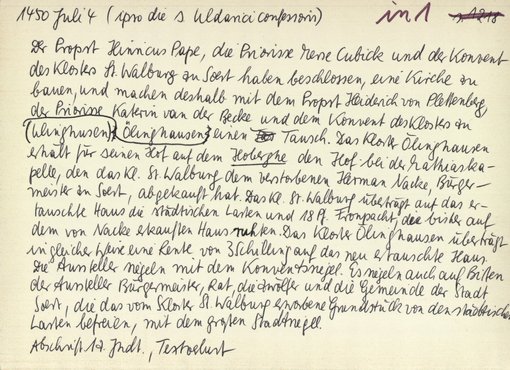 1450 Juli 4 (ipso die s Uldarici confessoris) in 1
Der Propst Heinricus Pape, die Priorisse Nerse Cubick und der Konvent
des Klosters St. Walburg zu Soest haben beschlossen, eine Kirche zu
bauen, und machen deshalb mit dem Propst Heiderich von Plettenberg,
der Priorisse Katerin van der Becke und dem Konvent des Klosters zu
(Ulinghusen) Ölinghausen einen Tausch. Das Kloster Ölinghausen
erhält für seinen Hof auf dem Hoberghe den Hof bei der Mathiaska-
pelle, den das Kl. St. Walburg dem verstorbenen Herman Nacke, Bürger-
meister zu Soest, abgekauft hat. Das Kl. St. Walburg überträgt auf das er-
tauschte Haus die städtischen Lasten und 18 Pf. Fronpacht, die bisher auf
dem von Nacke erkauften Haus ruhten. Das Kloster Ölinghausen überträgt
in gleicher Weise eine Rente von 3 Schilling auf das neu ertauschte Haus.
Die Aussteller siegeln mit dem Konventssiegel. Es siegeln auch auf Bitten
der Aussteller Bürgermeister, Rat, die Zwölfer und die Gemeinde der Stadt
Soest, die das vom Kloster St. Walburg erworbene Grundstück von den städtischen
Lasten befreien, mit dem großen Stadtsiegel.
Abschrift 17. Jhdt.,